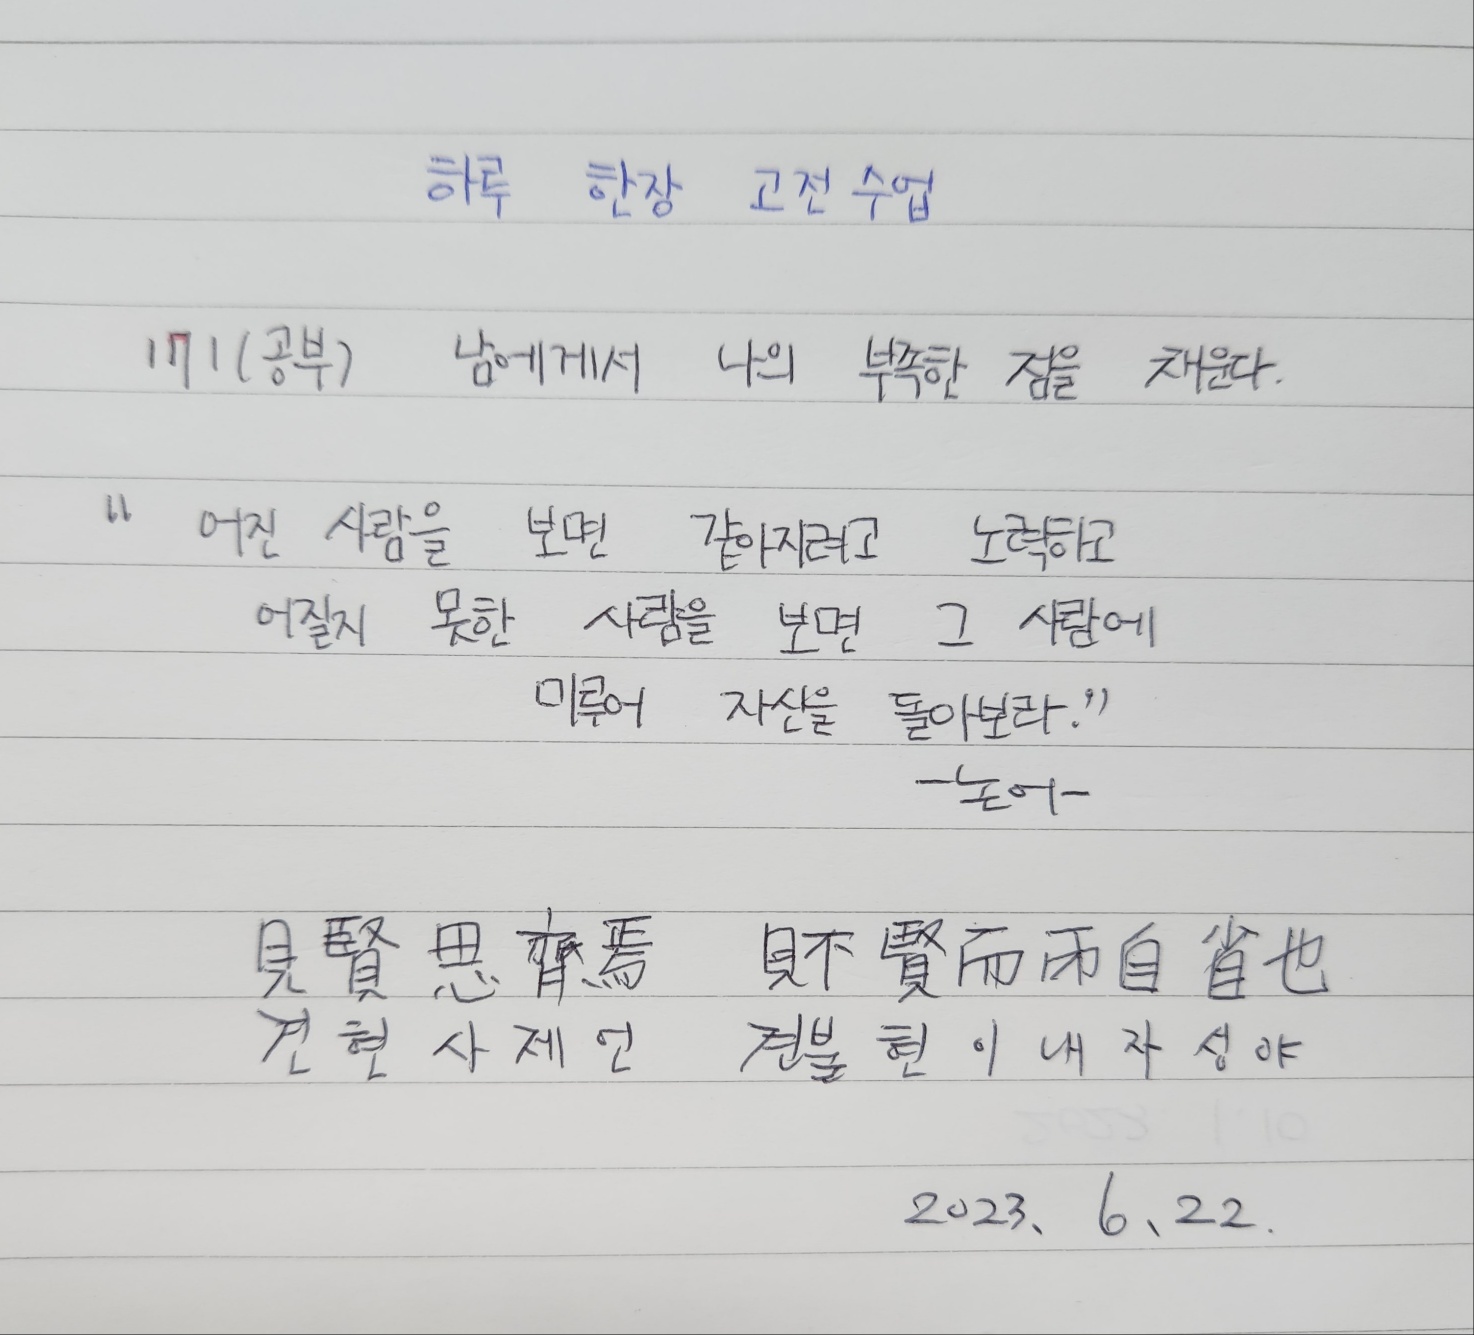 하루 한장 고전수업
171(공부) 남에게서 나의 부족한 점을 채운다.
“ 어진 사람을 보면 같아지려고 노력하고
어질지 못한 사람을 보면 그 사람에
미루어 자산을 돌아보라.”
-논어-
見賢思齊焉 見不賢而而自省也
견현사제언 견불현이내자성야
2023. 6. 22.